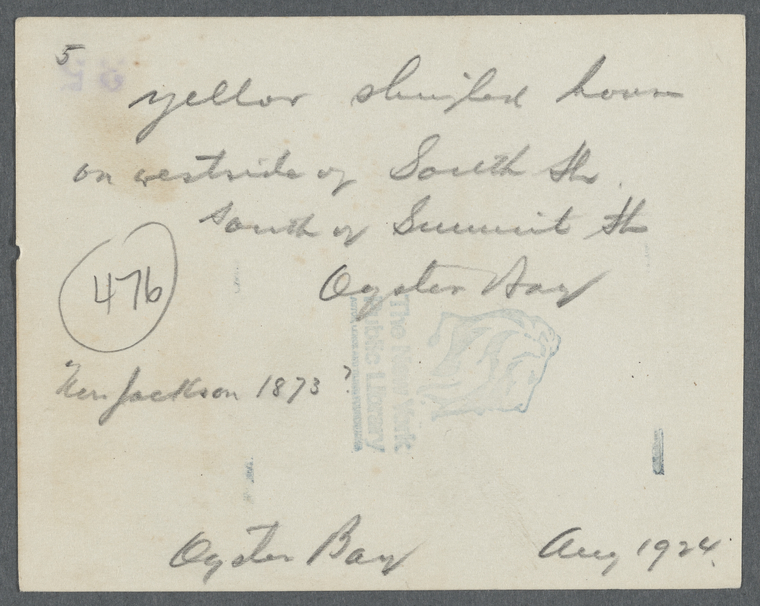 5
yellow shingled house
on westside of South St.
South of Summit St
Oyster Bay
476
Jackson 1873?
The New York
Public Library
Oyster Bay Aug 1924.